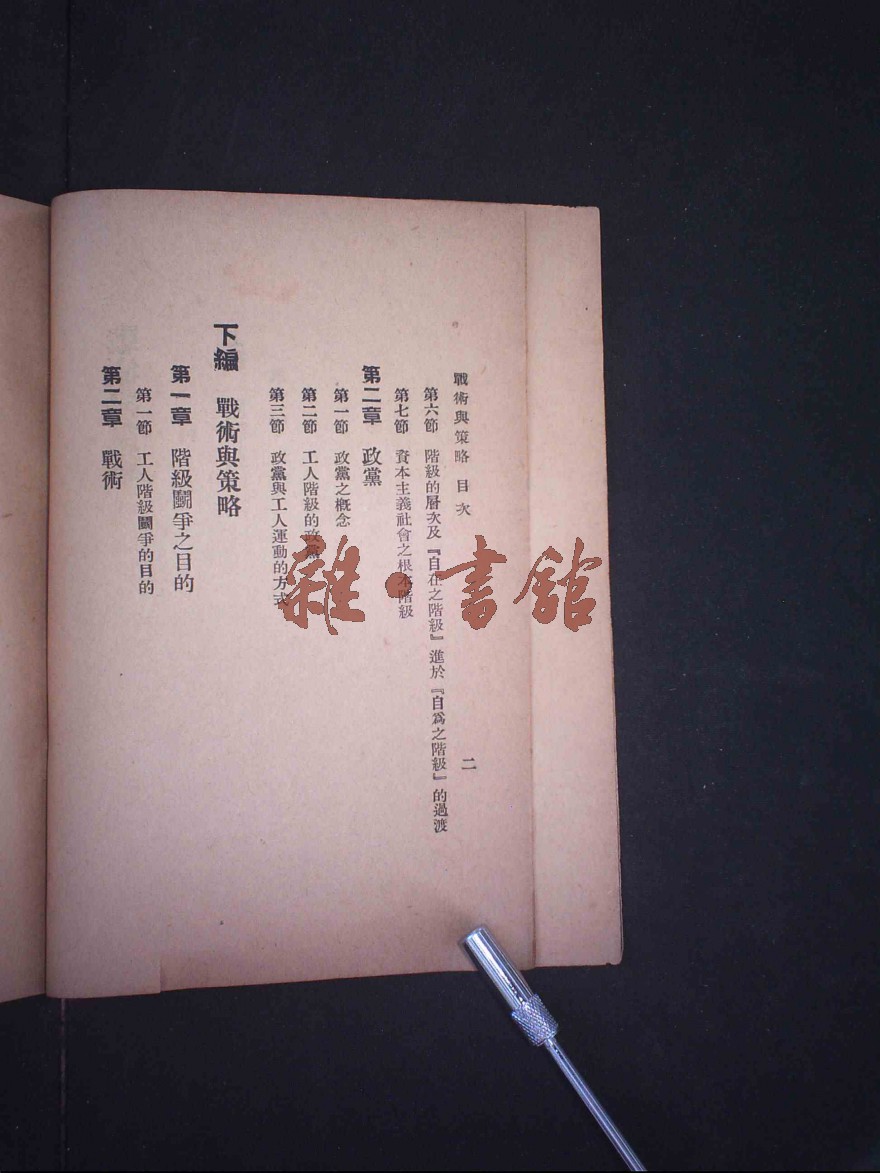 戰術與策略 目次
二
第六節 階級的層次及『自在之階級』進於『自爲之階級』的過渡
第七節 資本主義社會之根本階級
第二章 政黨
第一節 政黨之槪念
第二節 工人階級的政黨
第三節 政黨與工人運動的方式
下編 戰術與策略
第一章 階級鬭爭之目的
第一節 工人階級鬭爭的目的
第二章 戰術
雜·書館